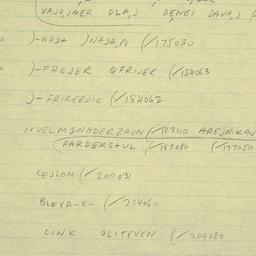 VAJO,JMER OLA,J DENGI DAVA,J
)-NAD+ )NADA,N (/175030
)-FREJER QFRIJER (/184063
)-FRIRERDIC (/184062
IXVELMQNADERZAUN (/187110 AREJNIKAV
(FARDERSTUL (/187080 (/177050
LEJLOM (/200031
BLEXA-R- (/204060
LINK QLITEVEN (/204080